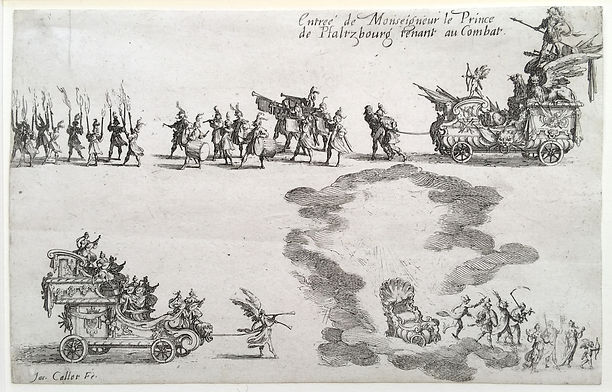 Entreé de Monseigneur le Prince
de Pfaltzbourg tenant au Combat.
Jac. Callot Fe.